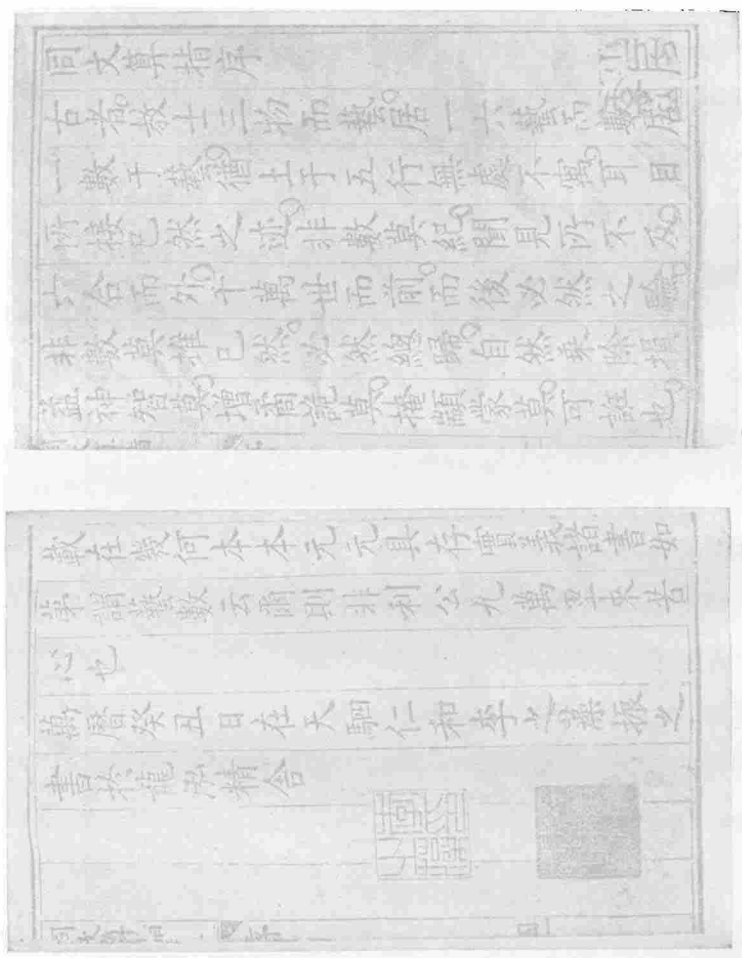 同文算指序
古者教士三物而藝居一六藝而數居
一數于藝猶土于五行無處不寓耳目
所接已然之迹非數莫紀聞見所不及
六合而外千萬世而前而後必然之驗
非數莫推已然必然總歸自然乘除損
益神智莫增矞詭莫掩顓蒙莫可誑也
載在幾何本本元元具存實義諸書如
第謂藝數云爾則非利公九萬里來苦
心也
萬曆癸丑日在天駟仁和李之藻振之
書於龍泓精舍